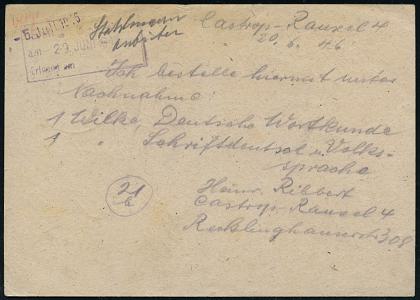 5. Juli 1946
Castrop-Rauxel 4
Stahlmann
20. 6. 46
Arbeiter
am 29. Juni
Erledigt am
Ich bestelle hiermit unter
Nachnahme:
1 Wilke, Deutsche Wortkunde
1 " Schriftdeutsch u. Volks-
sprache
21
b
Heinr. Ribbert
Castrop-Rauxel 4
Recklinghauserstr. 308